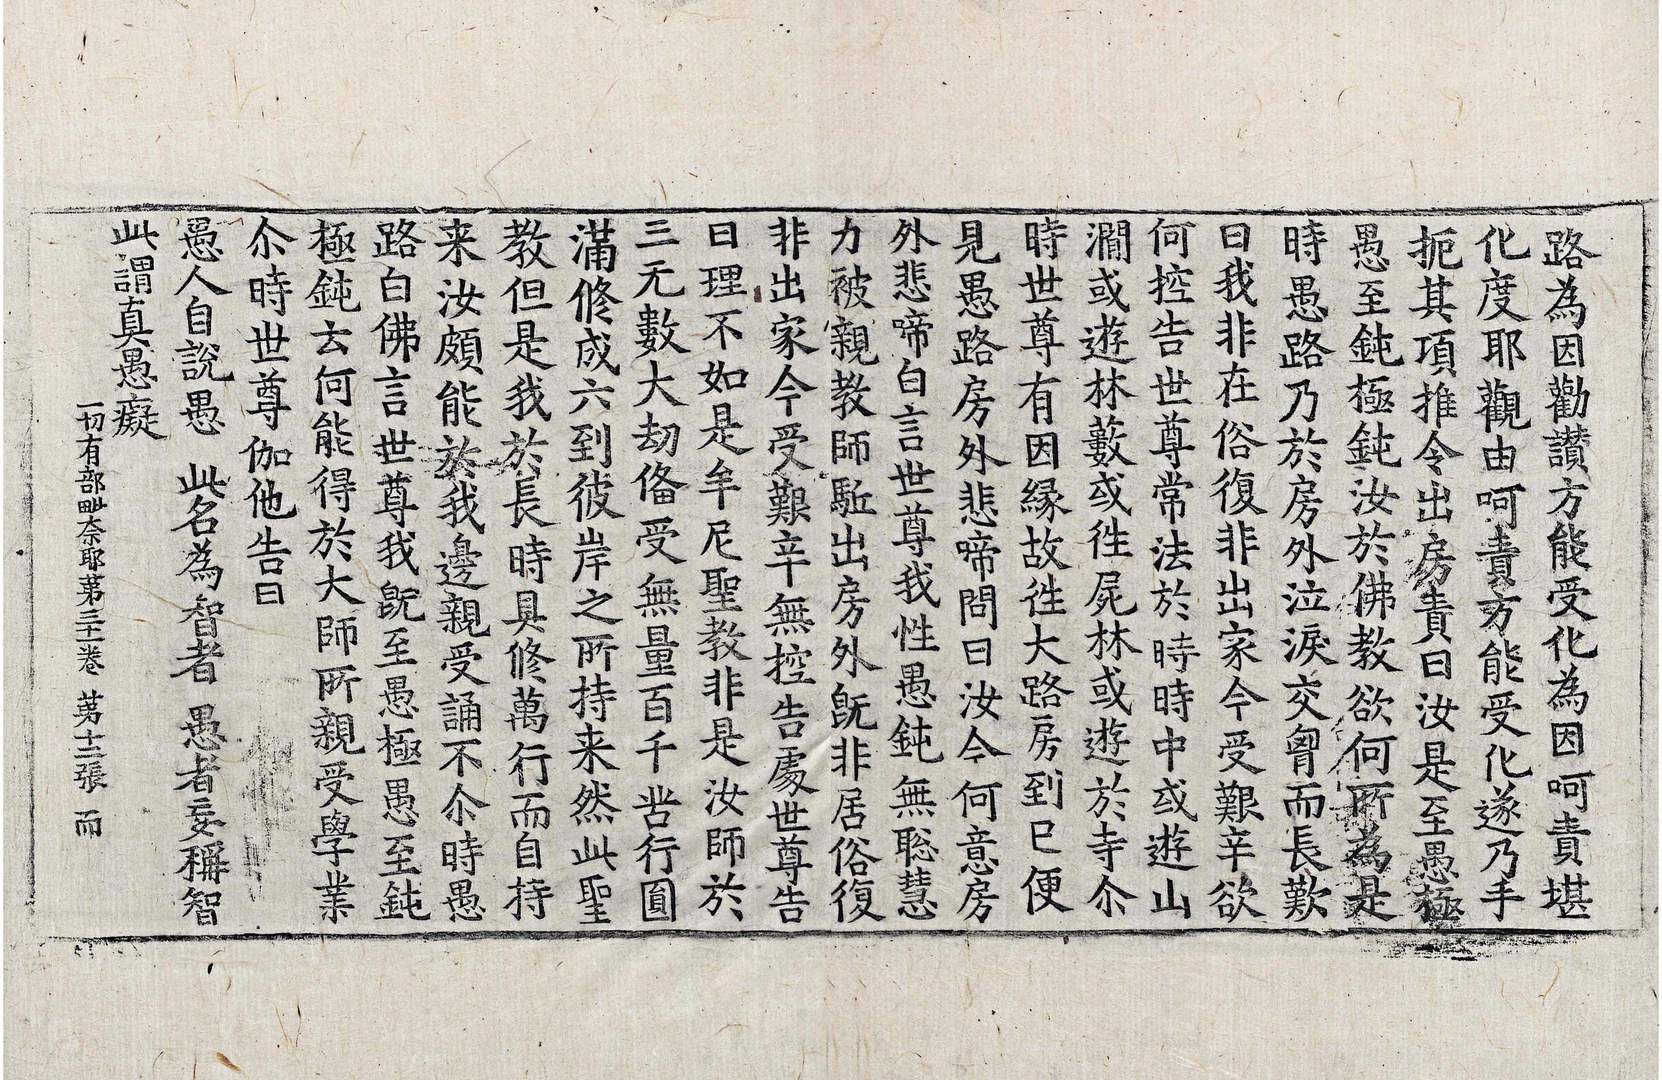 路為因勸讃方能受化為因呵責堪
化度耶觀由呵責方能受化遂乃手
扼其項推令出房責曰汝是至愚極
愚至鈍極鈍汝於佛教欲何所為是
時愚路乃於房外泣淚交𦚾而長歎
曰我非在俗復非出家今受艱辛欲
何控告世尊常法於時時中或遊山
澗或遊林藪或徃屍林或遊於寺尒
時世尊有因縁故徃大路房到已便
見愚路房外悲啼問曰汝今何意房
外悲啼白言世尊我性愚鈍無聡慧
力被親教師駈出房外旣非居俗復
非出家今受艱辛無控告處世尊告
曰理不如是牟尼聖教非是汝師於
三无數大劫俻受無量百千苦行圓
滿修成六到彼岸之所持来然此聖
教但是我於長時具修萬行而自持
来汝頗能於我邊親受誦不尒時愚
路白佛言世尊我旣至愚極愚至鈍
極鈍云何能得於大師所親受學業
尒時世尊伽他告曰
愚人自說愚 此名為智者 愚者妄稱智
此謂真愚癡
一切有部毗奈耶苐三十一卷 苐十二張 而